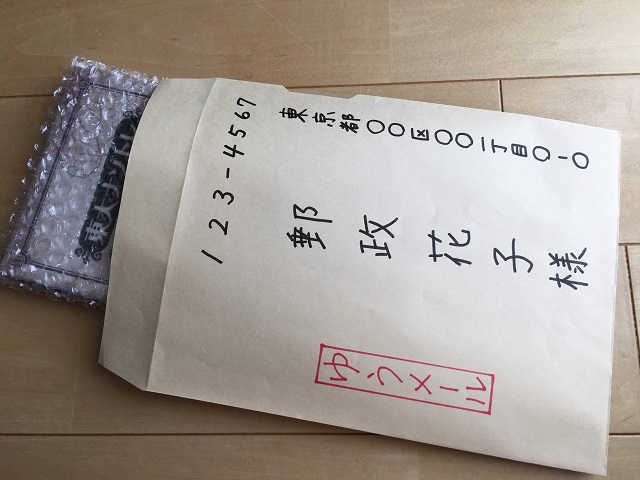 123-4567
東京都〇〇区〇〇一丁目〇-〇
郵政花子様
ゆうメール
東大ナゾトレ